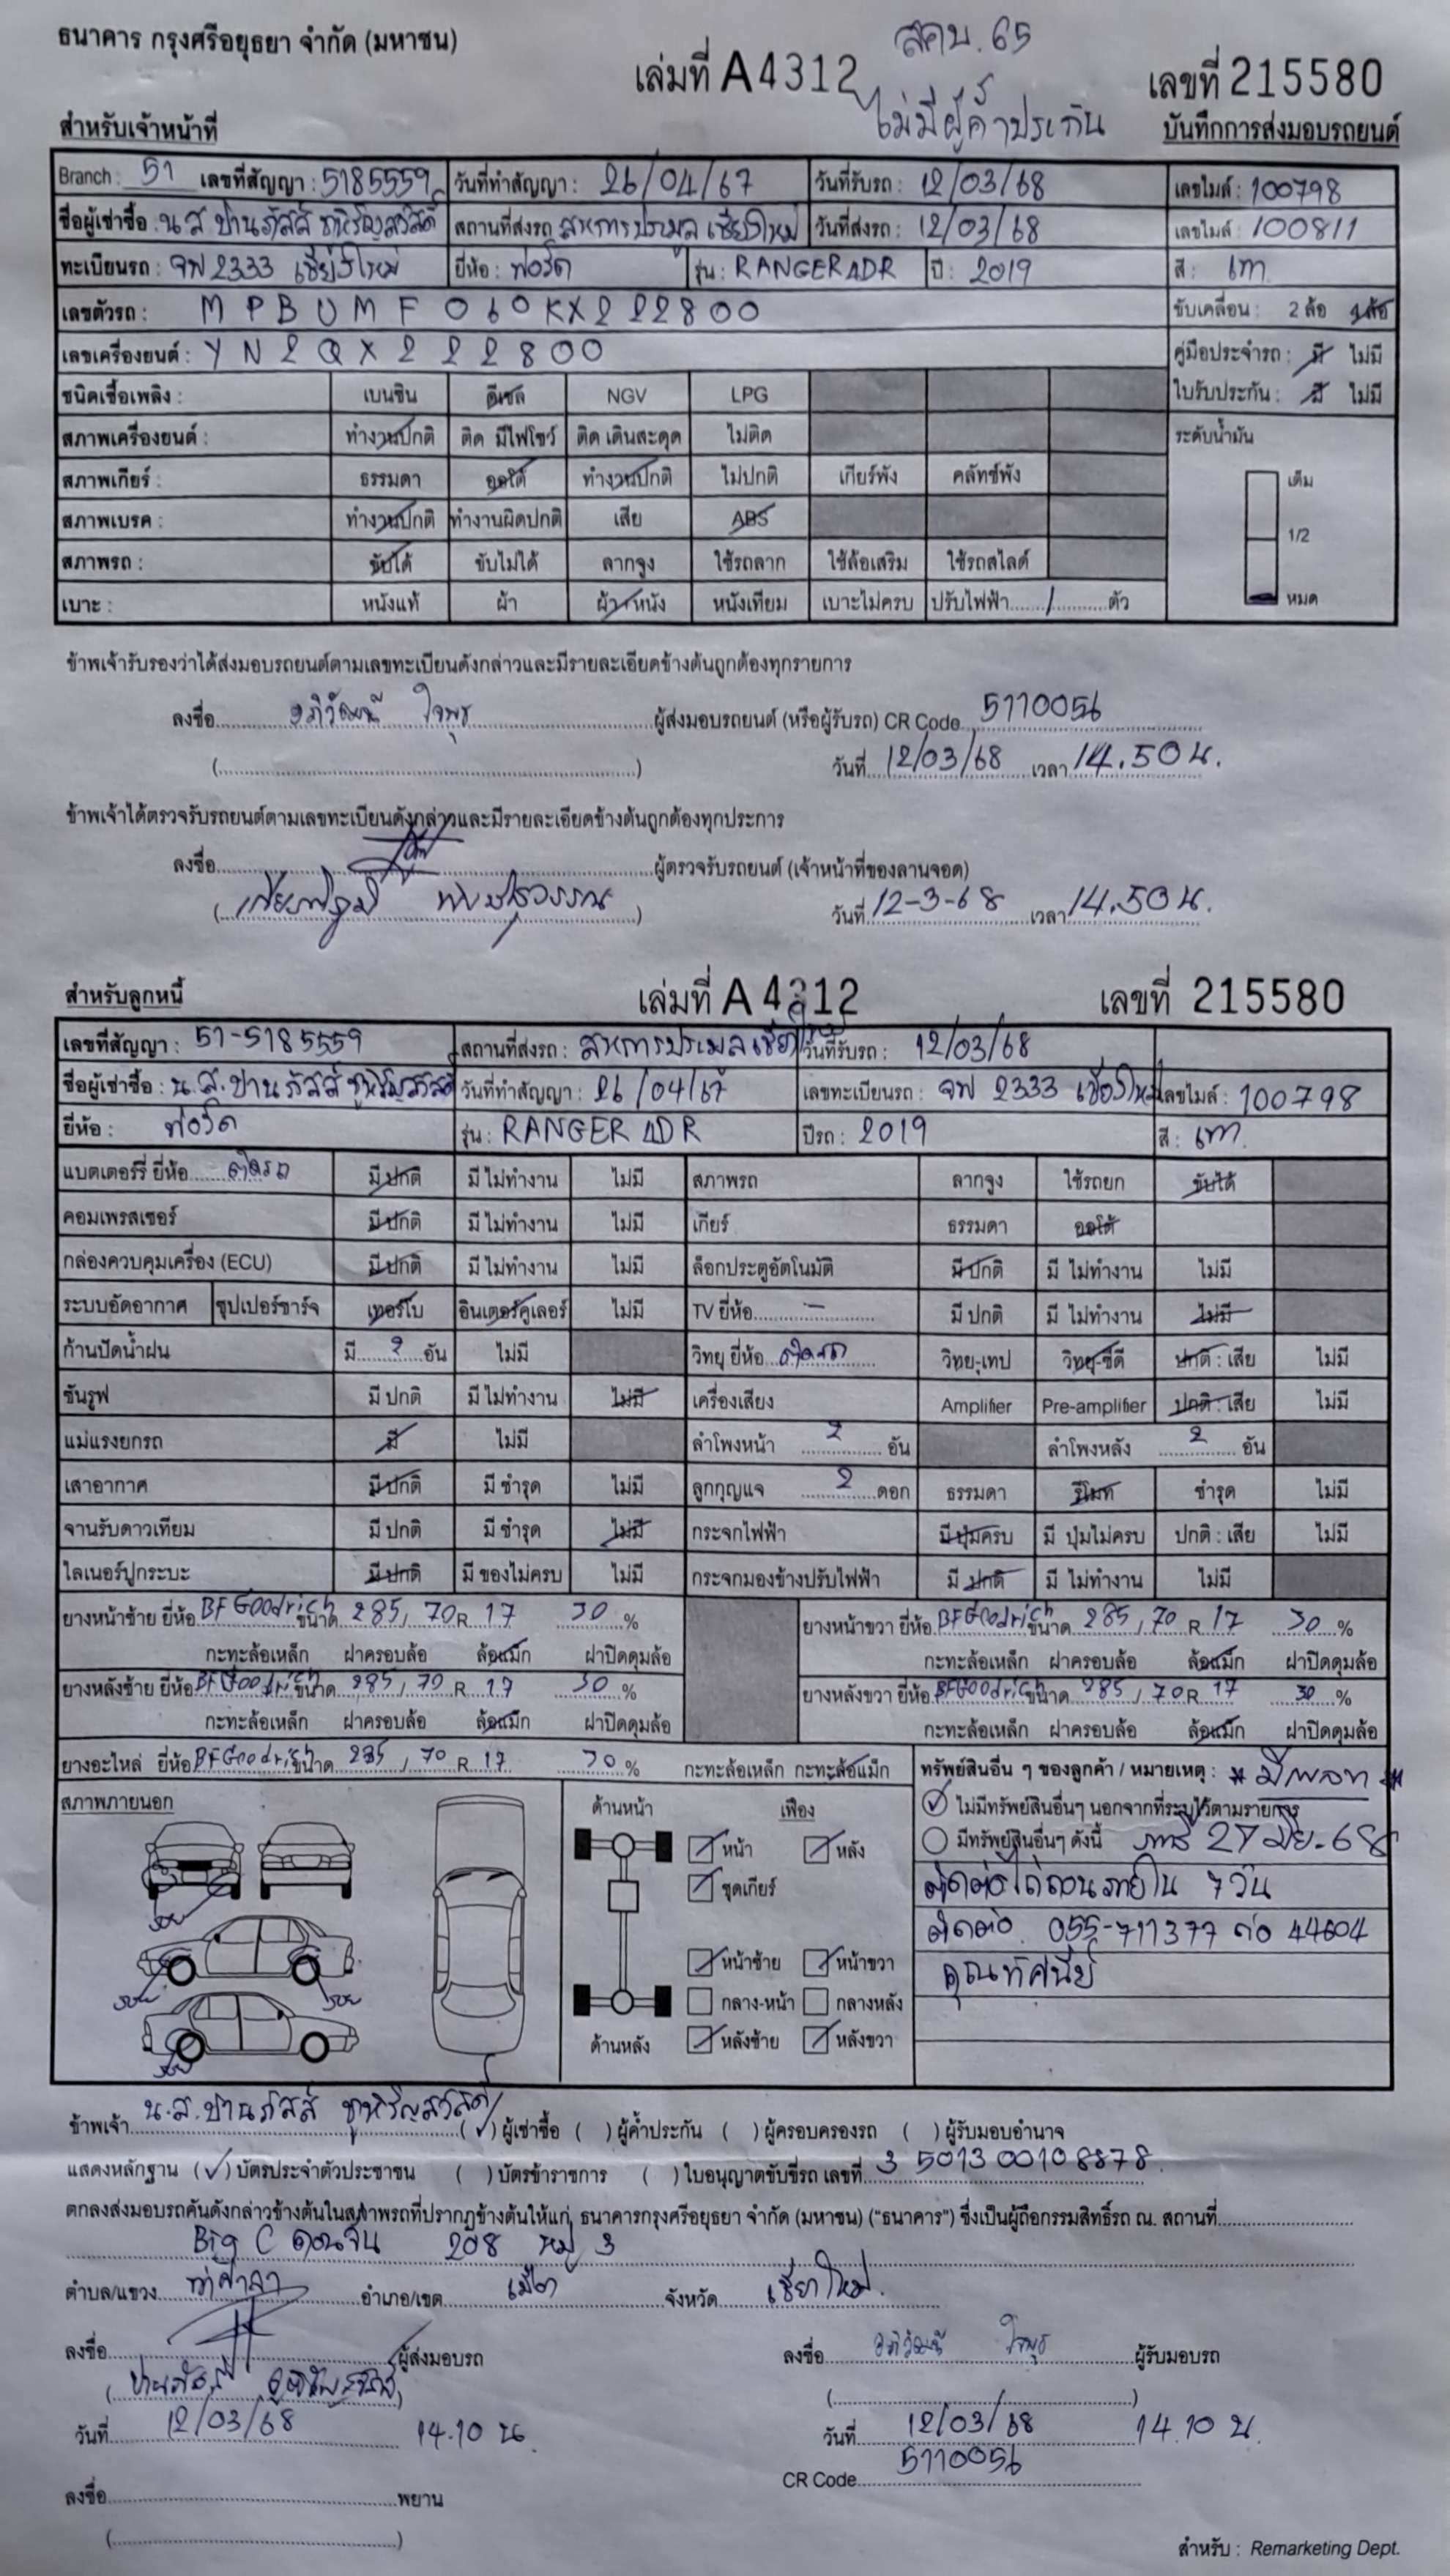 ธนาคาร กรุงศรีอยุธยา จำกัด (มหาชน)
สคบ. 65
เล่มที่ A4312 เลขที่ 215580
ไม่มีผู้ค้ำประกัน
สำหรับเจ้าหน้าที่ บันทึกการส่งมอบรถยนต์
Branch : 51 เลขที่สัญญา : 5185559 วันที่ทำสัญญา : 26/04/67 วันที่รับรถ : 12/03/68 เลขไมล์ : 100798
ชื่อผู้เช่าซื้อ : น.ส ปานภัสส์ สถานที่ส่งรถ สหการประมูล เชียงใหม่ วันที่ส่งรถ : 12/03/68 เลขไมล์ : 100811
ทะเบียนรถ : จฬ 2333 เชียงใหม่ ยี่ห้อ : ฟอร์ด รุ่น : RANGER ADR ปี : 2019 สี : เทา
เลขตัวรถ : MPBUMF060KX222800 ขับเคลื่อน : 2 ล้อ 4ล้อ
เลขเครื่องยนต์ : YN2QX222800 คู่มือประจำรถ : มี ไม่มี
ชนิดเชื้อเพลิง : เบนซิน ดีเซล NGV LPG ใบรับประกัน : มี ไม่มี
สภาพเครื่องยนต์ : ทำงานปกติ ติด มีไฟโชว์ ติด เดินสะดุด ไม่ติด ระดับน้ำมัน
สภาพเกียร์ : ธรรมดา ออโต้ ทำงานปกติ ไม่ปกติ เกียร์พัง คลัทช์พัง เต็ม
สภาพเบรค : ทำงานปกติ ทำงานผิดปกติ เสีย ABS 1/2
สภาพรถ : ขับได้ ขับไม่ได้ ลากจูง ใช้รถลาก ใช้ล้อเสริม ใช้รถสไลด์
เบาะ : หนังแท้ ผ้า ผ้า+หนัง หนังเทียม เบาะไม่ครบ ปรับไฟฟ้า....../..........ตัว หมด
ข้าพเจ้ารับรองว่าได้ส่งมอบรถยนต์ตามเลขทะเบียนดังกล่าวและมีรายละเอียดข้างต้นถูกต้องทุกรายการ
ลงชื่อ อภิวัฒน์ ใจพุธ ผู้ส่งมอบรถยนต์ (หรือผู้รับรถ) CR Code 5110056
(..........) วันที่ 12/03/68 เวลา 14.50 น.
ข้าพเจ้าได้ตรวจรับรถยนต์ตามเลขทะเบียนดังกล่าวและมีรายละเอียดข้างต้นถูกต้องทุกประการ
ลงชื่อ ผู้ตรวจรับรถยนต์ (เจ้าหน้าที่ของลานจอด)
วันที่ 12-3-68 เวลา 14.50 น.
สำหรับลูกหนี้ เล่มที่ A4312 เลขที่ 215580
เลขที่สัญญา : 51-5185559 สถานที่ส่งรถ : สหการประมูลเชียงใหม่ วันที่รับรถ : 12/03/68
ชื่อผู้เช่าซื้อ : น.ส.ปานภัสส์ วันที่ทำสัญญา : 26/04/67 เลขทะเบียนรถ : จฬ 2333 เชียงใหม่ เลขไมล์ : 100798
ยี่ห้อ : ฟอร์ด รุ่น : RANGER ADR ปีรถ : 2019 สี : เทา
แบตเตอร์รี่ ยี่ห้อ ติดรถ มี ปกติ มี ไม่ทำงาน ไม่มี สภาพรถ ลากจูง ใช้รถยก ขับได้
คอมเพรสเซอร์ มี ปกติ มี ไม่ทำงาน ไม่มี เกียร์ ธรรมดา ออโต้
กล่องควบคุมเครื่อง (ECU) มี ปกติ มี ไม่ทำงาน ไม่มี ล็อกประตูอัตโนมัติ มี ปกติ มี ไม่ทำงาน ไม่มี
ระบบอัดอากาศ ซุปเปอร์ชาร์จ เทอร์โบ อินเตอร์คูเลอร์ ไม่มี TV ยี่ห้อ - มี ปกติ มี ไม่ทำงาน ไม่มี
ก้านปัดน้ำฝน มี 2 อัน ไม่มี วิทยุ ยี่ห้อ ติดรถ วิทยุ-เทป วิทยุ-ซีดี ปกติ : เสีย ไม่มี
ซันรูฟ มี ปกติ มี ไม่ทำงาน ไม่มี เครื่องเสียง Amplifier Pre-amplifier ปกติ : เสีย ไม่มี
แม่แรงยกรถ มี ไม่มี ลำโพงหน้า 2 อัน ลำโพงหลัง 2 อัน
เสาอากาศ มี ปกติ มี ชำรุด ไม่มี ลูกกุญแจ 2 ดอก ธรรมดา รีโมท ชำรุด ไม่มี
จานรับดาวเทียม มี ปกติ มี ชำรุด ไม่มี กระจกไฟฟ้า มี ปุ่มครบ มี ปุ่มไม่ครบ ปกติ : เสีย ไม่มี
ไลเนอร์ปูกระบะ มี ปกติ มี ของไม่ครบ ไม่มี กระจกมองข้างปรับไฟฟ้า มี ปกติ มี ไม่ทำงาน ไม่มี
ยางหน้าซ้าย ยี่ห้อ BFGoodrich ขนาด 285/70 R 17 30 % ยางหน้าขวา ยี่ห้อ BFGoodrich ขนาด 285/70 R 17 30 %
กะทะล้อเหล็ก ฝาครอบล้อ ล้อแม็ก ฝาปิดดุมล้อ กะทะล้อเหล็ก ฝาครอบล้อ ล้อแม็ก ฝาปิดดุมล้อ
ยางหลังซ้าย ยี่ห้อ BFGoodrich ขนาด 285/70 R 17 30 % ยางหลังขวา ยี่ห้อ BFGoodrich ขนาด 285/70 R 17 30 %
กะทะล้อเหล็ก ฝาครอบล้อ ล้อแม็ก ฝาปิดดุมล้อ กะทะล้อเหล็ก ฝาครอบล้อ ล้อแม็ก ฝาปิดดุมล้อ
ยางอะไหล่ ยี่ห้อ BFGoodrich ขนาด 285/70 R 17 30 % กะทะล้อเหล็ก กะทะล้อแม็ก ทรัพย์สินอื่น ๆ ของลูกค้า / หมายเหตุ :
สภาพภายนอก ด้านหน้า เฟือง ไม่มีทรัพย์สินอื่นๆ นอกจากที่ระบุไว้ตามรายการ
หน้า หลัง มีทรัพย์สินอื่นๆ ดังนี้ ภาษี 27 มิย.68
ชุดเกียร์ ติดต่อไถ่ถอนภายใน 7 วัน
รอย ติดต่อ 055-711377 ต่อ 44604
หน้าซ้าย หน้าขวา คุณทัศนีย์
รอย รอย กลาง-หน้า กลางหลัง
รอย ด้านหลัง หลังซ้าย หลังขวา
ข้าพเจ้า น.ส.ปานภัสส์ (✓) ผู้เช่าซื้อ ( ) ผู้ค้ำประกัน ( ) ผู้ครอบครองรถ ( ) ผู้รับมอบอำนาจ
แสดงหลักฐาน (✓) บัตรประจำตัวประชาชน ( ) บัตรข้าราชการ ( ) ใบอนุญาตขับขี่รถ เลขที่ 3 5013 00108878
ตกลงส่งมอบรถคันดังกล่าวข้างต้นในสภาพรถที่ปรากฏข้างต้นให้แก่ ธนาคารกรุงศรีอยุธยา จำกัด (มหาชน) ("ธนาคาร") ซึ่งเป็นผู้ถือกรรมสิทธิ์รถ ณ. สถานที่
Big C ดอนจั่น 208 หมู่ 3
ตำบล/แขวง ท่าศาลา อำเภอ/เขต เมือง จังหวัด เชียงใหม่
ลงชื่อ ผู้ส่งมอบรถ ลงชื่อ อภิวัฒน์ ใจพุธ ผู้รับมอบรถ
(ปานภัสส์ ) (..........)
วันที่ 12/03/68 14.10 น. วันที่ 12/03/68 14.10 น.
CR Code 5110056
ลงชื่อ พยาน
(..........)
สำหรับ : Remarketing Dept.